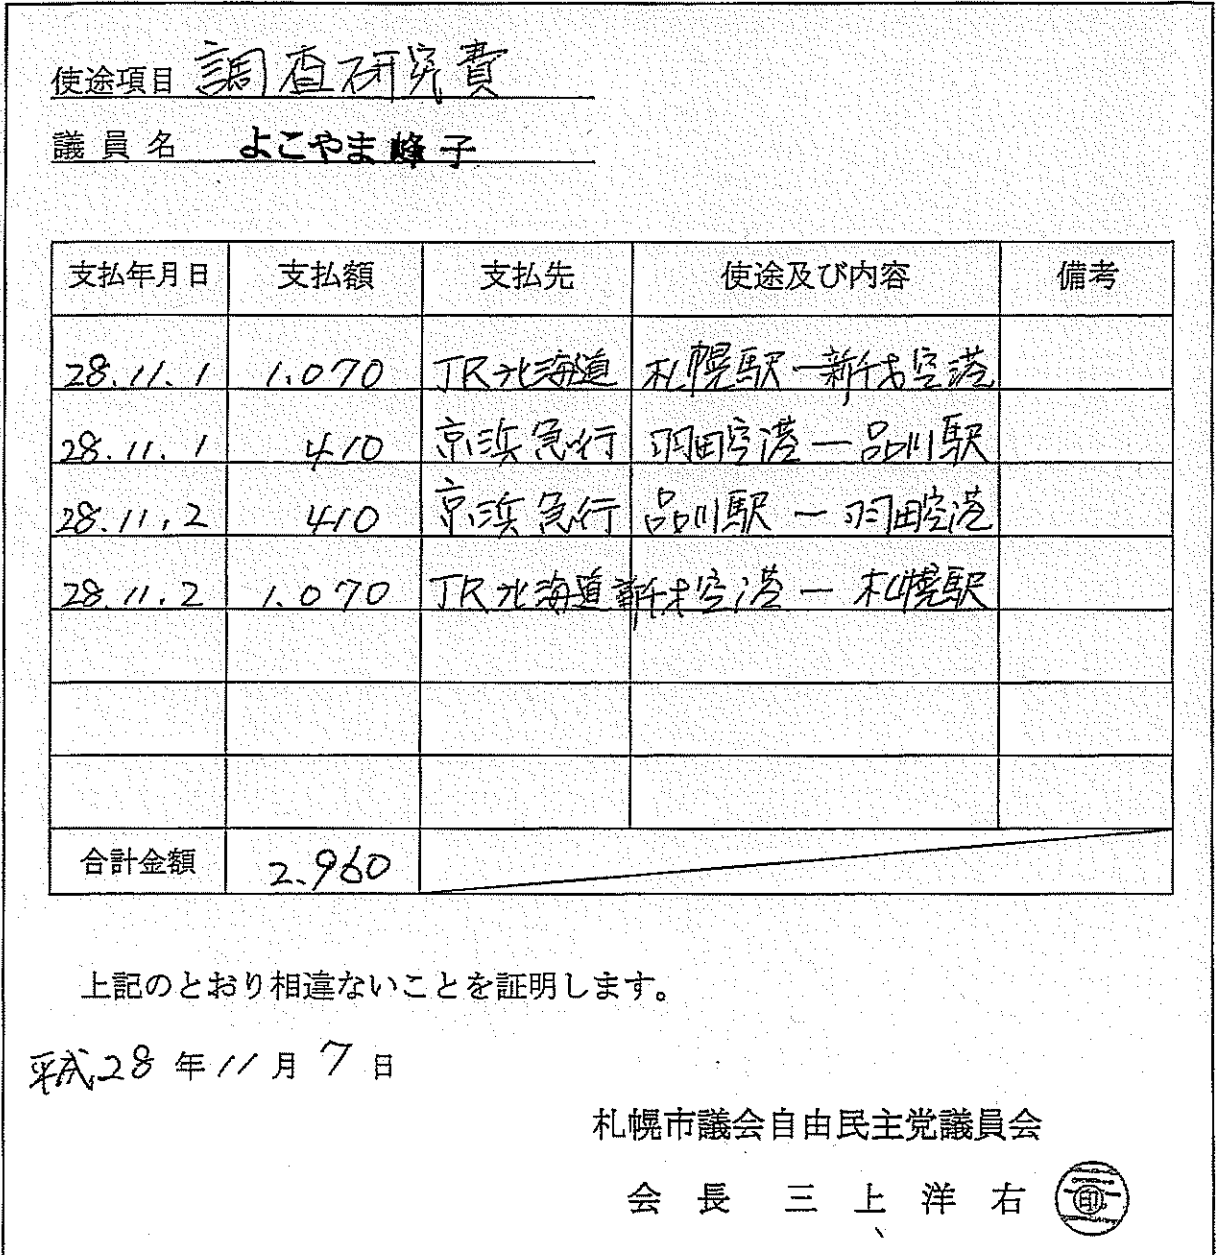 使途項目 調査研究費
議員名 よこやま峰子
支払年月日 支払額 支払先 使途及び内容 備考
28.11.1 1.070 JR北海道 札幌駅ー新千才空港
28.11.1 410 京浜急行 羽田空港ー品川駅
28.11.2 410 京浜急行 品川駅ー羽田空港
28.11.2 1.070 JR北海道 新千才空港ー札幌駅
合計金額 2.960
上記のとおり相違ないことを証明します。
平成28年11月7日
札幌市議会自由民主党議員会
会長 三上洋右 印